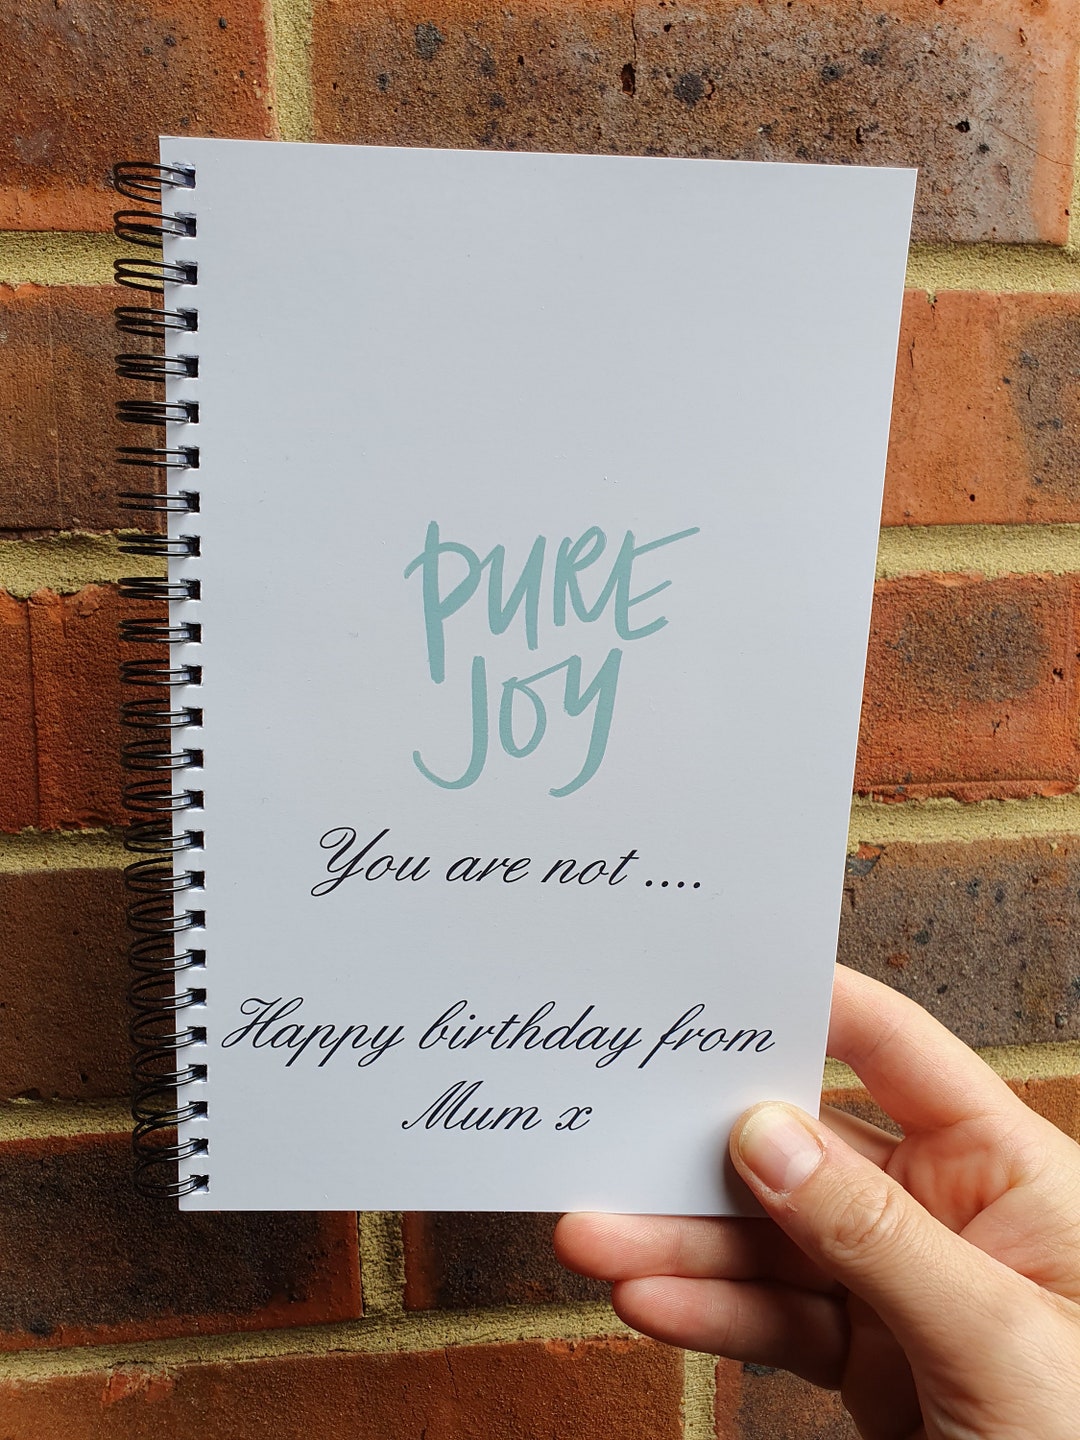 PURE
JOY
You are not ....
Happy birthday from
Mum x